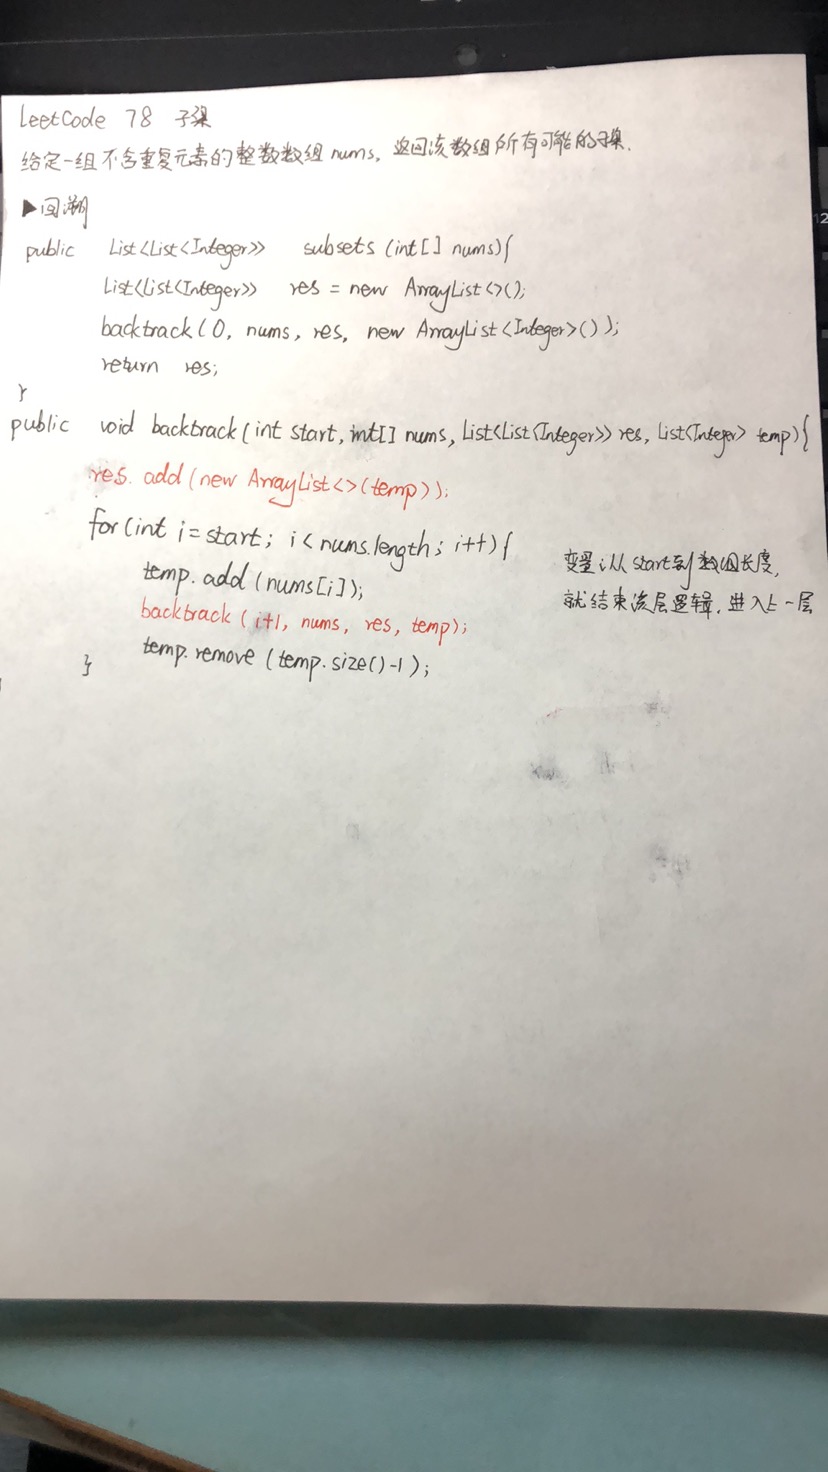 LeetCode 78 子集
给定一组不含重复元素的整数数组 nums, 返回该数组所有可能的子集.
▶回溯
public List<List<Integer>> subsets (int[] nums){
List<List<Integer>> res = new ArrayList<>();
backtrack(0, nums, res, new ArrayList<Integer>());
return res;
}
public void backtrack(int start, int[] nums, List<List<Integer>> res, List<Integer> temp){
res.add(new ArrayList<>(temp));
for(int i=start; i<nums.length; i++){
temp.add(nums[i]);
backtrack(i+1, nums, res, temp);
temp.remove(temp.size()-1);
}
变量i从start到数组长度,
就结束该层逻辑, 进入上一层
12